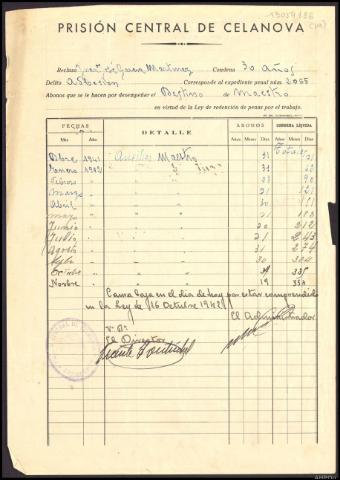 PRISIÓN CENTRAL DE CELANOVA
Recluso Juan José García Martínez Condena 30 años
Delito Adhesión Corresponde al expediente penal núm. 2.055
Abonos que se le hacen por desempeñar el Destino de Maestro
en virtud de la Ley de redención de penas por el trabajo.
FECHAS DETALLE ABONOS CONDENA LÍQUIDA
Mes Año Años Meses Días Años Meses Días
Dbre 1941 Auxiliar Maestro 31
Enero 1942 " " 31
Febrero " "
Marzo " " 31 121
Abril " " 30 151
Mayo " "
Junio " " 30 212
Julio " " 31 243
Agosto " " 31 274
Sepbre " " 30 304
Octubre " " 31 335
Novbre " " 19
Causa baja en el día de hoy por estar comprendido
en la Ley de 16 Octubre 1942
V.º B.º
El Director
El Administrador